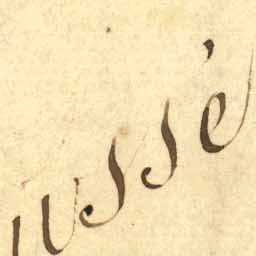 ussé